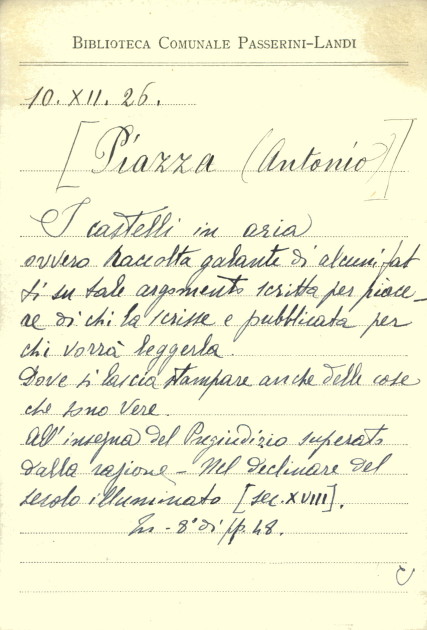 BIBLIOTECA COMUNALE PASSERINI-LANDI
10. XII. 26.
[Piazza (Antonio)]
I castelli in aria
ovvero Raccolta galante di alcuni fat
ti su tale argomento scritta per piace-
re di chi la scrisse e pubblicata per
chi vorrà leggerla.
Dove si lascia stampare anche delle cose
che sono vere.
All'insegna del Pregiudizio superato
dalla ragione - Nel declinare del
secolo illuminato [sec. XVIII].
In - 8° di pp. 48.